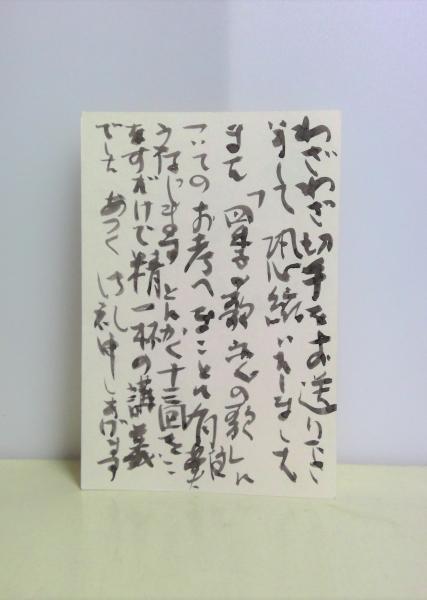 わざわざ切手をお送り下さ
いまして恐縮いたしました
また「四季の歌 恋の歌」に
ついてのお考へをことに有難
う存じます とにかく 回をこ
なすだけで精一杯の講義
でした あつく御礼申しあげます